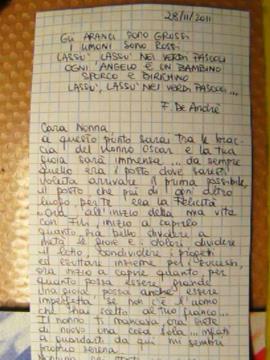 28/11/2011
GLI ARANCI SONO GROSSI
I LIMONI SONO ROSSI
LASSÙ, LASSÙ NEI VERDI PASCOLI
OGNI ANGELO È UN BAMBINO
SPORCO E BIRICHINO
LASSÙ, LASSÙ NEI VERDI PASCOLI...
F. DE ANDRÈ
CARA NONNA,
a questo punto sarai tra le brac-
cia del nonno Oscar e la tua
gioia sarà immensa... da sempre
quello era il posto dove saresti
voluta arrivare il prima possibile,
il posto che più di ogni altro
luogo, per te era la Felicità
...ora all'inizio della mia vita
con inizio a capirlo
quanto sia bello dividere a
metà le gioie e i dolori, dividere
il letto, condividere i progetti
ed esultare insieme per i successi
ora inizio a capire quanto, per
quanto possa essere grande,
una gioia possa anche essere
imperfetta se non c'è l'uomo
che hai scelto al tuo fianco...
Il nonno ti mancava, ora siete
di nuovo a casa sola...
a guardarti da qui mi sembri
proprio serena